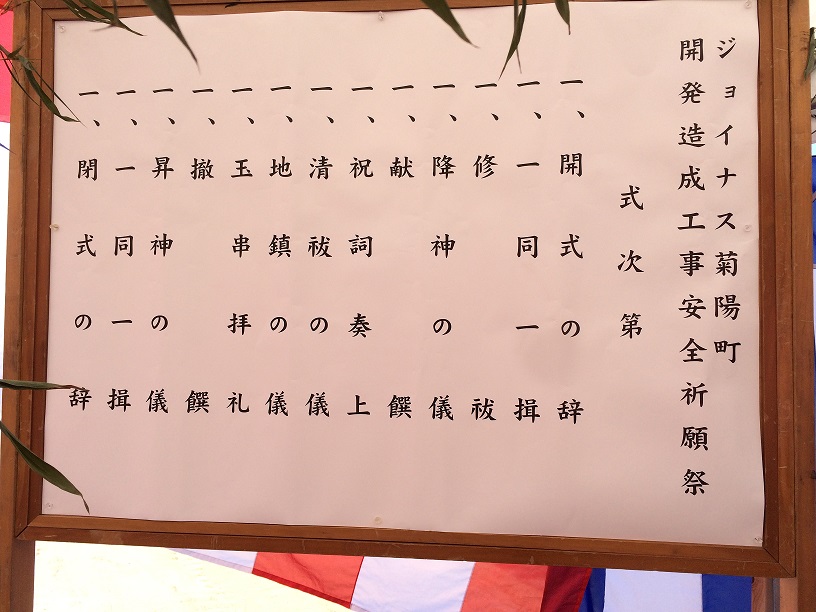 ジョイナス菊陽町
開発造成工事安全祈願祭
式次第
一、開式の辞
一、一同一揖
一、修祓
一、降神の儀
一、献饌
一、祝詞奏上
一、清祓の儀
一、地鎮の儀
一、玉串拝礼
一、撤饌
一、昇神の儀
一、一同一揖
一、閉式の辞